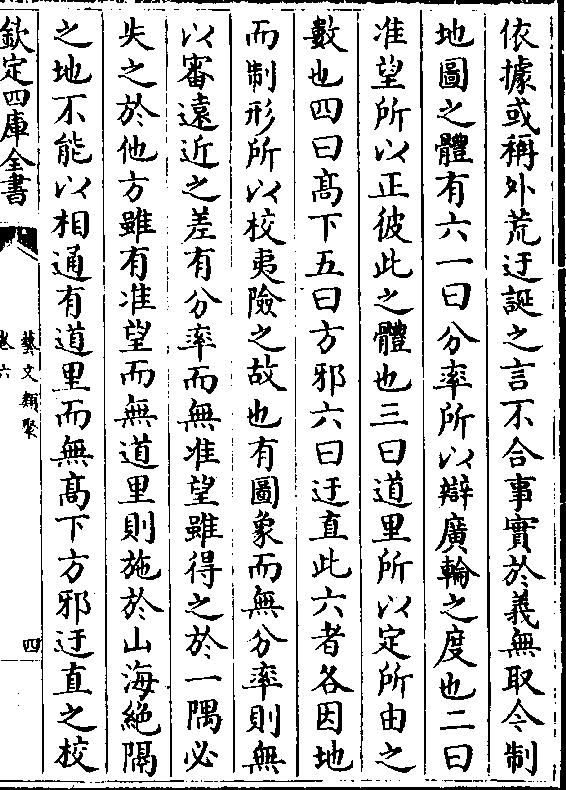 依據或稱外荒迂誕之言不合事實於義無取今制
地圖之體有六一曰分率所以辯廣輪之度也二曰
准望所以正彼此之體也三曰道里所以定所由之
數也四曰髙下五曰方邪六曰迂直此六者各因地
而制形所以校夷險之故也有圖象而無分率則無
以審遠近之差有分率而無准望雖得之於一隅必
失之於他方雖有准望而無道里則施於山海絶隔
之地不能以相通有道里而無髙下方邪迂直之校
欽定四庫全書
藝文類聚
卷六
四